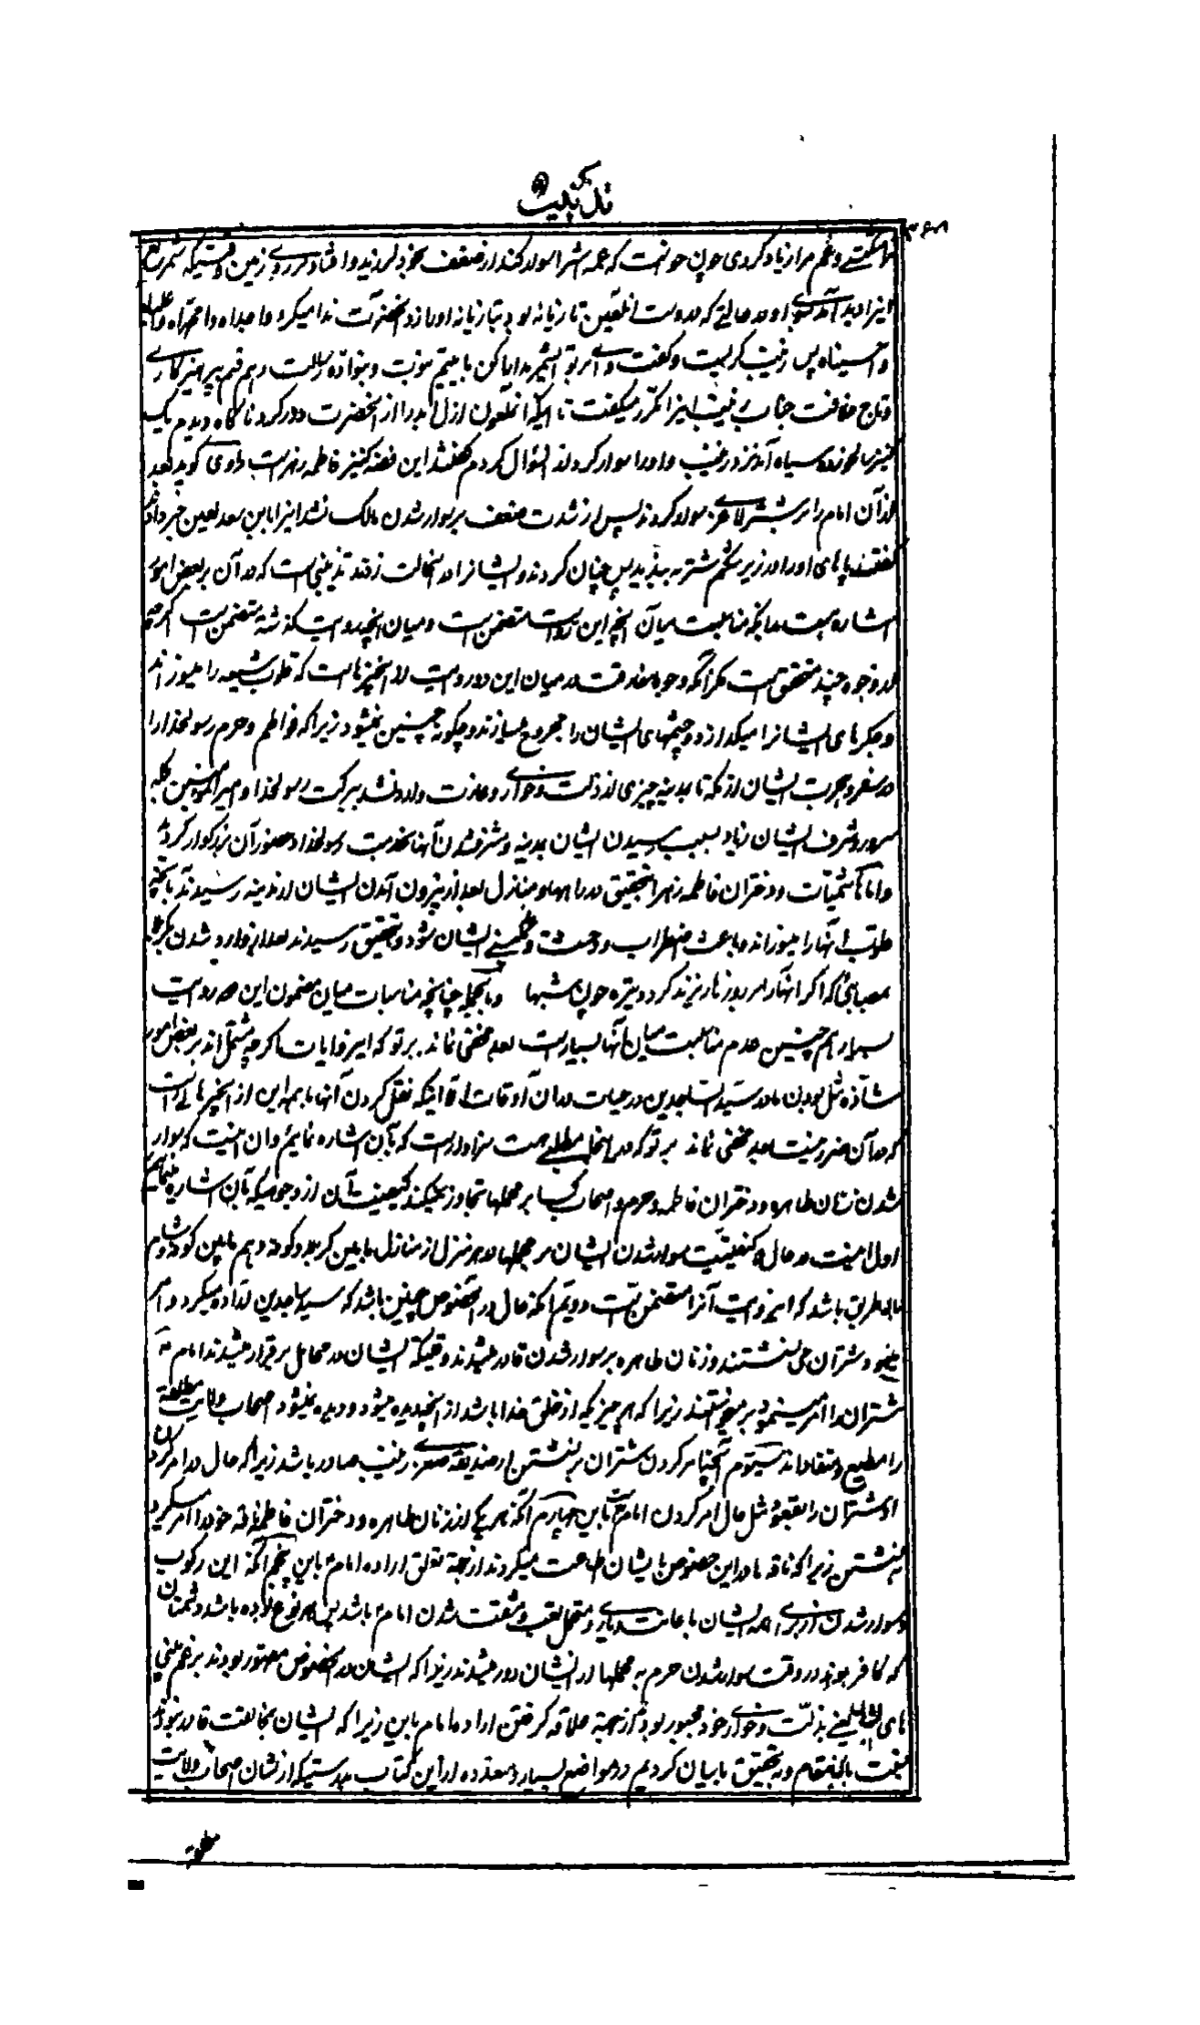 تذییل
۳۶۸
شکستی و غم مرا زیاد کردی چون خواست که بر شتر سوار کند از ضعف بخود لرزید و افتاد بر روی زمین وقتیکه شمر
اینرا دید آمد بسوی او در حالتی که در دست آن لعین تازیانه بود با تازیانه او را زد آنحضرت ندا میکرد وا جداه وا محمداه وا علیاه
وا حسیناه پس زینب گریست و گفت وای بر تو ای شمر مدارا کن با یتیم نبوت و بنواده رسالت و هم قسم پرهیزکاری
و تاج خلافت جناب زینب اینرا مکرر میگفت تا اینکه آنملعون ازل و ابد را از آنحضرت دور کرد ناگاه دیدم یک
کنیز سیاه آمد نزد زینب و او را سوار کرد از او سؤال کردم گفتند این فضه کنیز فاطمه زهراست راوی گوید بعد
از آن امام را بر شتر لاغر سوار کردند پس از شدت ضعف بر سوار شدن مالک نشد اینرا بابن سعد لعین خبر دادند
گفتند پاهای او را در زیر شکم شتر ببندید پس چنان کردند و ایشانرا در آنحالت زدند تذییلی است که در آن ببعض امور
اشاره میشود بدانکه مناسبت میان آنچه این روایت متضمن است و میان آنچه روایت گذشته متضمن است اگر چه
از وجوه چند متحقق است مگر آنکه وجوه مفارقت در میان این دو روایت از آنچیزهاست که قلوب شیعه را میسوزاند
و جگرهای ایشانرا میگدازد و چشمهای ایشان را مجروح میسازند و چگونه چنین نمیشود زیرا که فواطم و حرم رسولخدا را
در سفر و هجرت ایشان از مکه تا مدینه چیزی از ذلت و خواری وارد نشد ببرکت رسولخدا و امیرالمؤمنین بلکه
سرور و شرف ایشان زیاد بسبب رسیدن ایشان بمدینه و مشرف شدن آنها بخدمت رسولخدا و حضور آن بزرگوار
و اما هاشمیات و دختران فاطمه زهرا بتحقیق در راهها و منازل بعد از بیرون آمدن ایشان از مدینه رسیدند بآنچه
قلوب آنها را میسوزاند و باعث اضطراب و وحشت و غمگینی ایشان شود و بتحقیق رسیدند بعد از وارد شدن بکربلا
بمصیبتهائی که اگر آنها بر روز نازل میشد تیره چون شبها و بالجمله چنانچه مناسبات میان مضمون این دو روایت
بسیار هم چنین عدم مناسبت میان آنها بسیار است بعد مخفی نماند بر تو که این روایات اگر چه مشتملند بر بعض امور
شاذه مثل بودن مادر سید الساجدین در حیات در آن اوقات الا اینکه نقل کردن آنها با همه این از آنچیزهائی است
که در آن ضرر نیست بعد مخفی نماند بر تو که در اینجا مطلبی هست سزاوار است که بآن اشاره نمایم و آن اینست که سوار
شدن زنان طاهره و دختران فاطمه و حرم و اصحاب کسا بر محملها تجاوز نمیکند کیفیت آن از وجوهیکه بآن اشاره مینمایم
اول اینست در حال و کیفیت سوار شدن ایشان بر محملها در هر منزل از منازل مابین کربلا و کوفه و هم مابین کوفه و شام
بآنطریق باشد که این روایت آنرا متضمن است دویم آنکه حال در آنخصوص چنین باشد که سید ساجدین اراده میکرد و امر
مینمود و شتران می نشستند و زنان طاهره بر سوار شدن قادر میشدند وقتیکه ایشان در محامل برقرار میشدند امام
شتران را امر مینمود بر میخواستند زیرا که هر چیزیکه از خلق خدا باشد از آنچه دیده میشود و دیده نمیشود اصحاب ولایت مطلقه
را مطیع و منقادند سیوم آنچنان امر کردن شتران بر نشستن از صدیقه صغری زینب صادر باشد زیرا که حال در امر کردن
او شتران را بقعود مثل حال امر کردن امام است باین چهارم آنکه هر یکی از زنان طاهره و دختران فاطمه ناقه خود را امر میکرد
به نشستن زیرا که ناقه ها در این خصوص بایشان اطاعت میکردند از جهة تعلق اراده امام باین پنجم آنکه این رکوب
و سوار شدن از برای همه ایشان باعانت و یاری و متحمل تعب و مشقت شدن امام باشد پس بهر نوع بوده باشد دشمنان
که کافر بودند در وقت سوار شدن حرم به محملها از ایشان دور میشدند زیرا که ایشان در آنخصوص مقهور بودند بر غم بینی
های بذلت و خواری خود مجبور بودند از جهة علاقه گرفتن اراده امام باین زیرا که ایشان بمخالفت قادر نبودند
باینمقام و بتحقیق ما بیان کردیم در مواضع بسیار و متعدده از این کتاب بدرستیکه از شان اصحاب ولایت
مطلقه